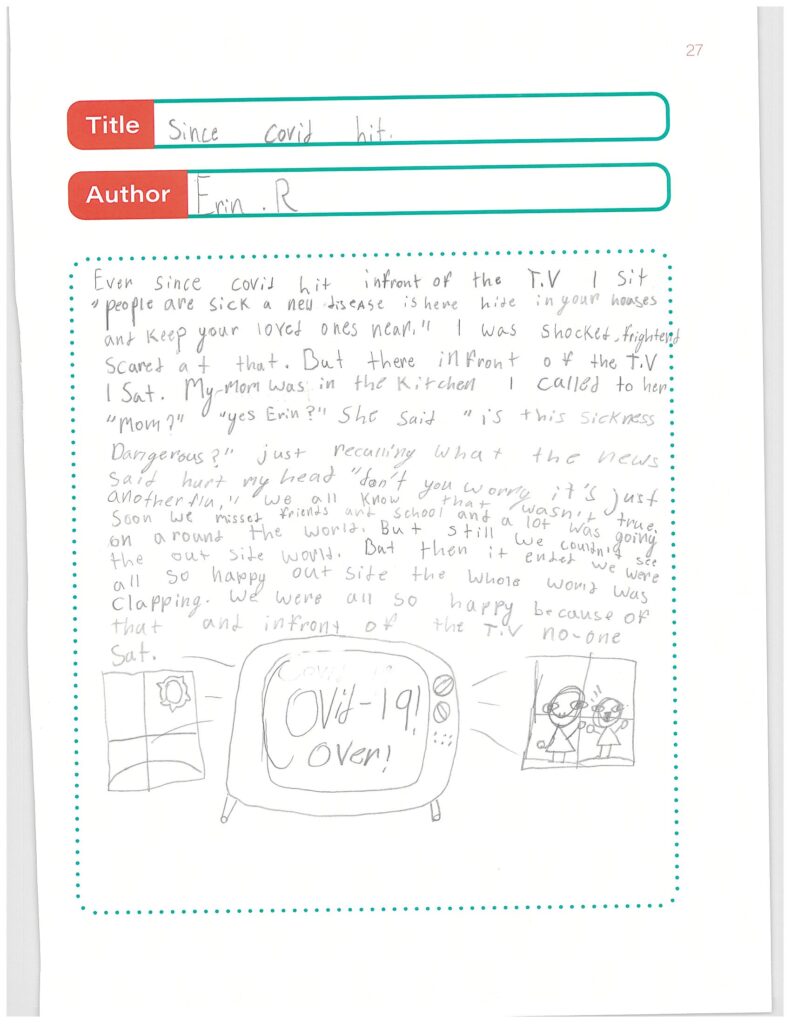 27
Title Since covid hit.
Author Erin . R
Ever since covid hit infront of the T.V I sit
"people are sick a new disease is here hide in your houses
and keep your loved ones near." I was shocked, frightend
scared at that. But there infront of the T.V
I sat. My mom was in the kitchen I called to her
"Mom?" "yes Erin?" She said "is this sickness
Dangerous?" just recalling what the news
said hurt my head "don't you worry it's just
another flu," we all know that wasn't true.
Soon we missed friends and school and a lot was going
on around the world. But still we couldn't see
the out side world. But then it ended we were
all so happy out side the whole world was
clapping. We were all so happy because of
that and infront of the T.V no-one
Sat.
Covid-19
OVid-19!
over!